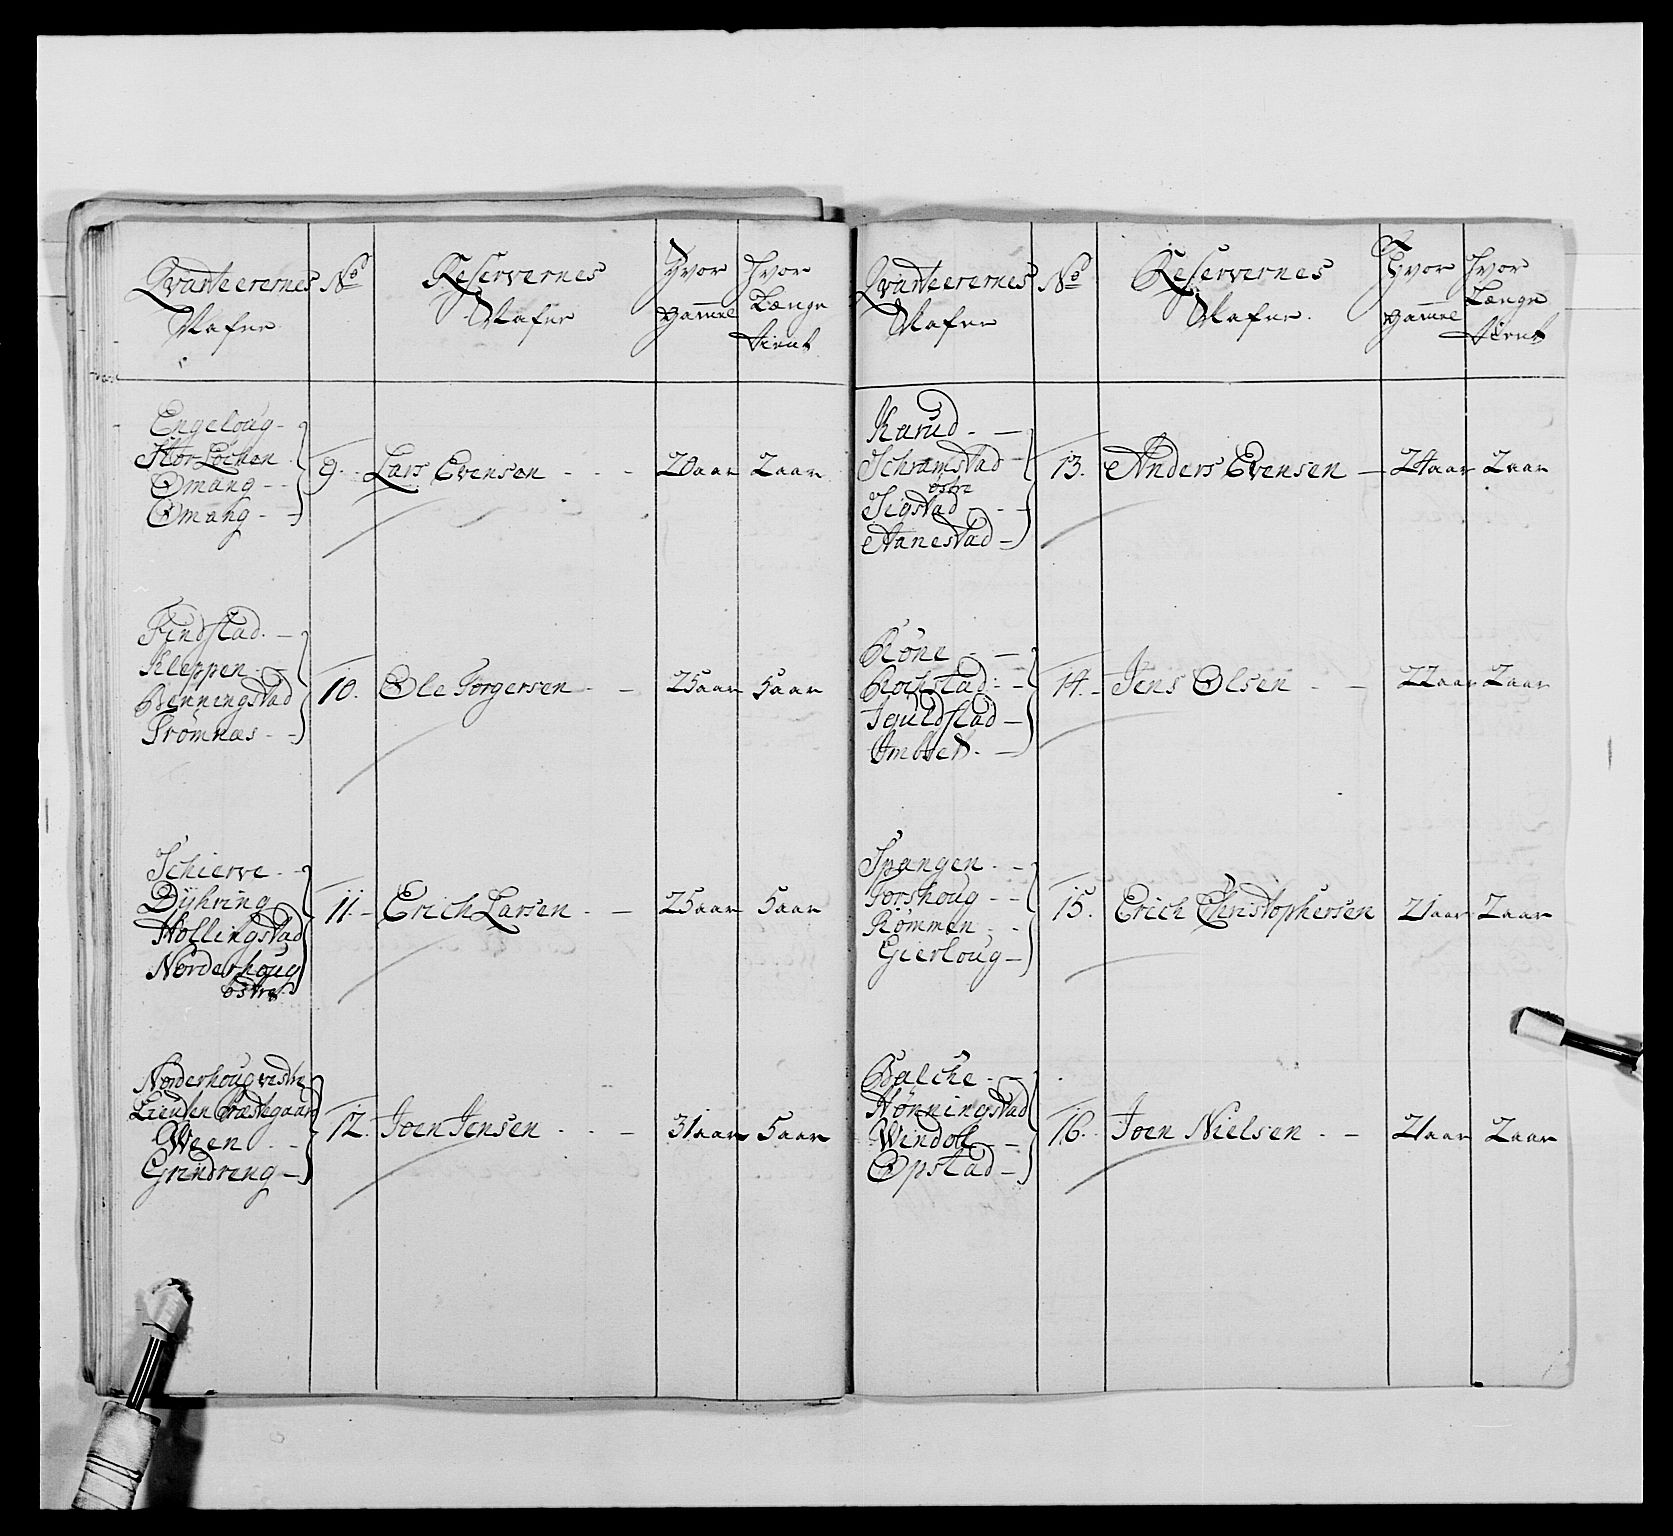 Qvarteerernes Nafne
No
Reservernes Nafne
Hvor Gammel
Hvor Længe Tient
Engeloug
Stor Löchen
Omang
Omang
9. Lars Evensen 20 aar 2 aar
Findstad
Kleppen
Benningstad
Trömnæs
10. Ole Torgersen 25 aar 5 aar
Schierve
Dÿhring
Hollingstad
Norderhoug
östre
11. Erich Larsen 25 aar 5 aar
Norderhoug vestre
Lieulen Præstegaard
Ween
Grindreng
12. Joen Jensen 31 aar 5 aar
Qvarteerernes Nafne
No
Reservernes Nafne
Hvor Gammel
Hvor Længe Tient
Karud
Schramstad
östre
Sigstad
Aanestad
13. Anders Evensen 24 aar 2 aar
Röne
Rochstad
Iguldstad
Imbset
14. Jens Olsen 22 aar 2 aar
Spangen
Torshoug
Römmen
Gierloug
15. Erich Christophersen 21 aar 2 aar
Balche
Hönningstad
Windoll
Opstad
16. Joen Nielsen 21 aar 2 aar